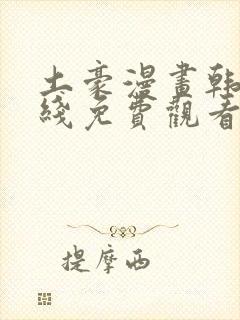 土豪漫畫韩
綫免費觀看
提摩西